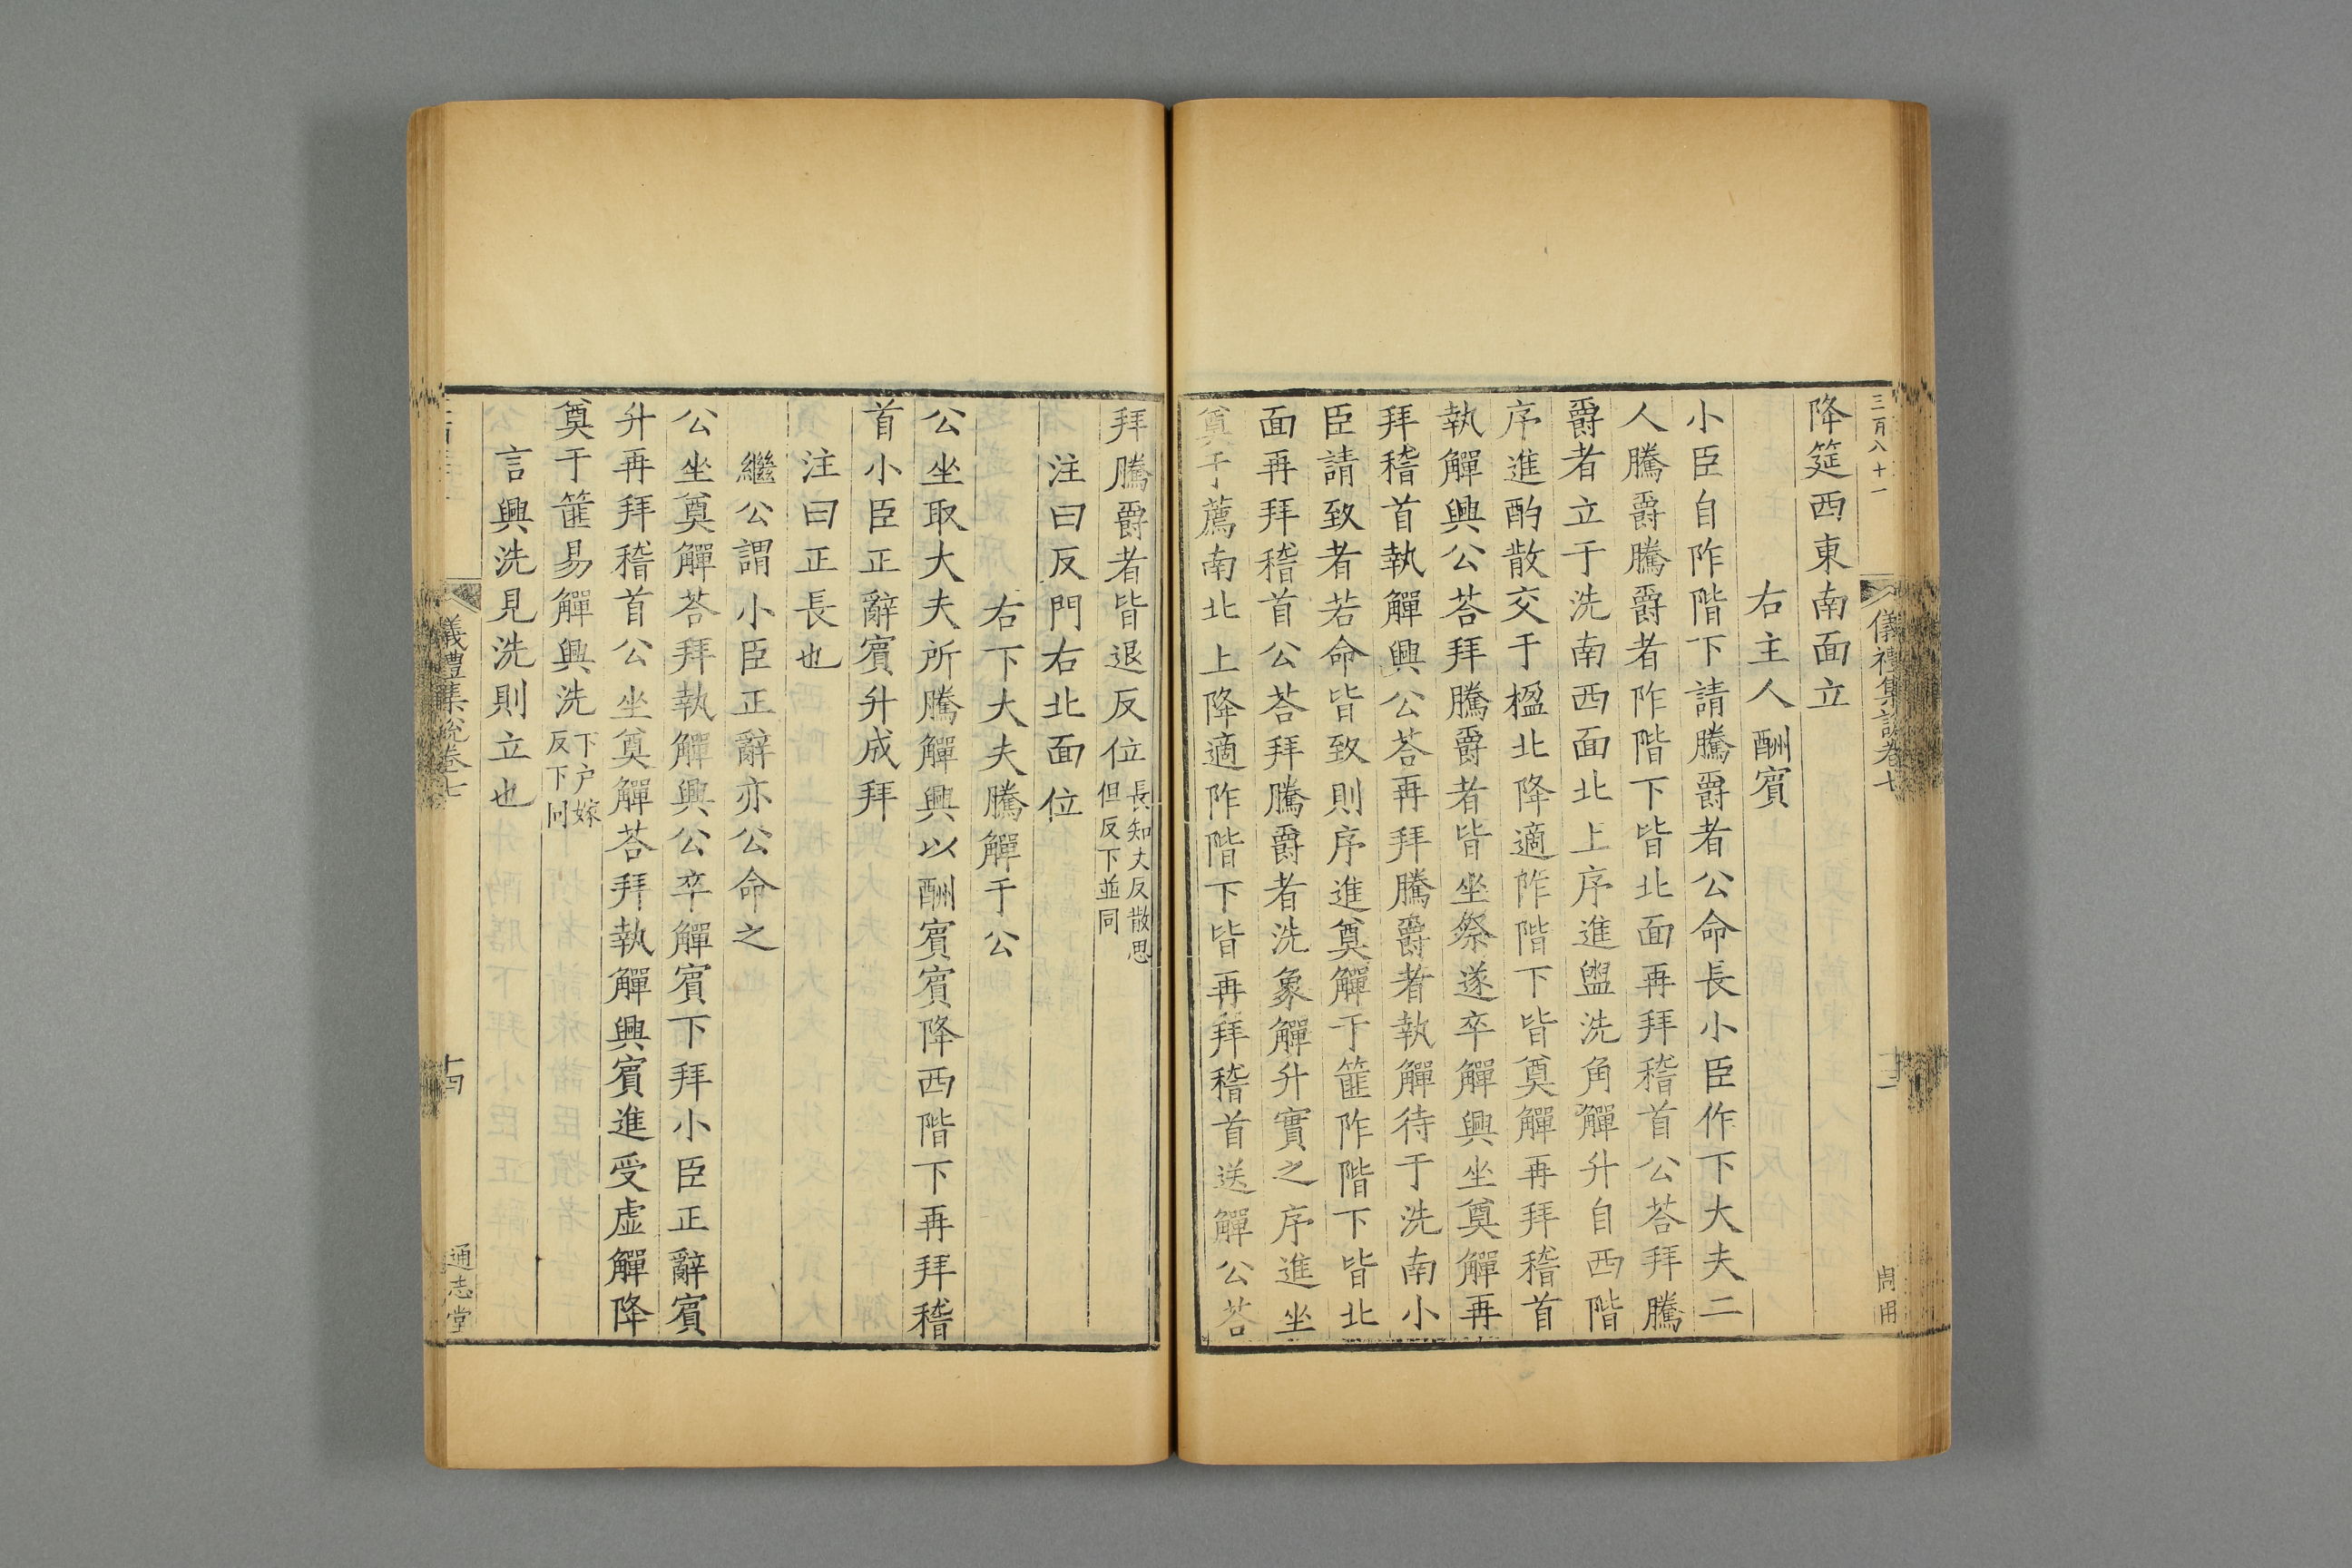 三百八十一
儀禮集說卷七
周用
降筵西東南面立
右主人酬賓
小臣自阼階下請騰爵者公命長小臣作下大夫二
人騰爵騰爵者阼階下皆北面再拜稽首公荅拜騰
爵者立于洗南西面北上序進盥洗角觶升自西階
序進酌散交于楹北降適阼階下皆奠觶再拜稽首
執觶興公荅拜騰爵者皆坐祭遂卒觶興坐奠觶再
拜稽首執觶興公荅再拜騰爵者執觶待于洗南小
臣請致者若命皆致則序進奠觶于篚阼階下皆北
面再拜稽首公荅拜騰爵者洗象觶升實之序進坐
奠于薦南北上降適阼階下皆再拜稽首送觶公荅
拜騰爵者皆退反位長知丈反散思但反下並同
注曰反門右北面位
右下大夫騰觶于公
公坐取大夫所騰觶興以酬賓賓降西階下再拜稽
首小臣正辭賓升成拜
注曰正長也
繼公謂小臣正辭亦公命之
公坐奠觶荅拜執觶興公卒觶賓下拜小臣正辭賓
升再拜稽首公坐奠觶荅拜執觶興賓進受虛觶降
奠于篚易觶興洗下户嫁反下同
言興洗見洗則立也
儀禮集說卷七
十四
通志堂